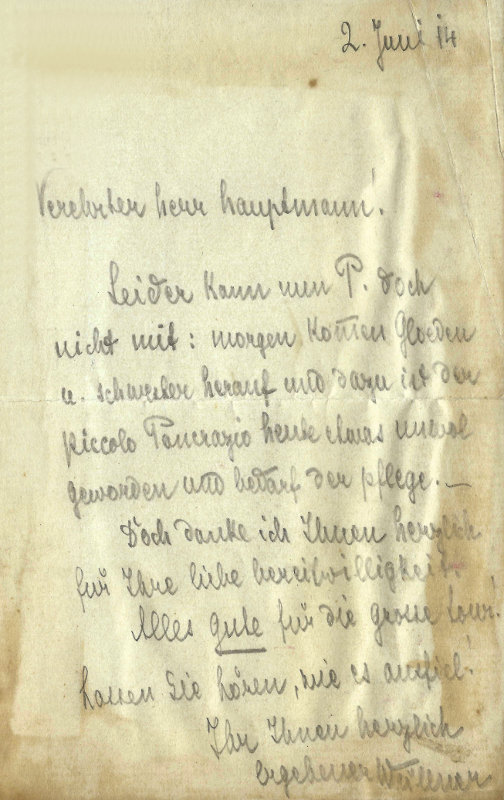 2. Juni 14
Verehrter herr hauptmann!
Leider kann nun P. doch
nicht mit: morgen kom̅en Gloeden
u. schwester herauf und dazu ist der
piccolo Pancrazio heute etwas unwol
geworden und bedarf der pflege. —
Doch danke ich Ihnen herzlich
für Ihre liebe bereitwilligkeit.
Alles gute für die grosse tour!
Lassen Sie hören, wie es ausfiel!
Ihr Ihnen herzlich
Ergebener